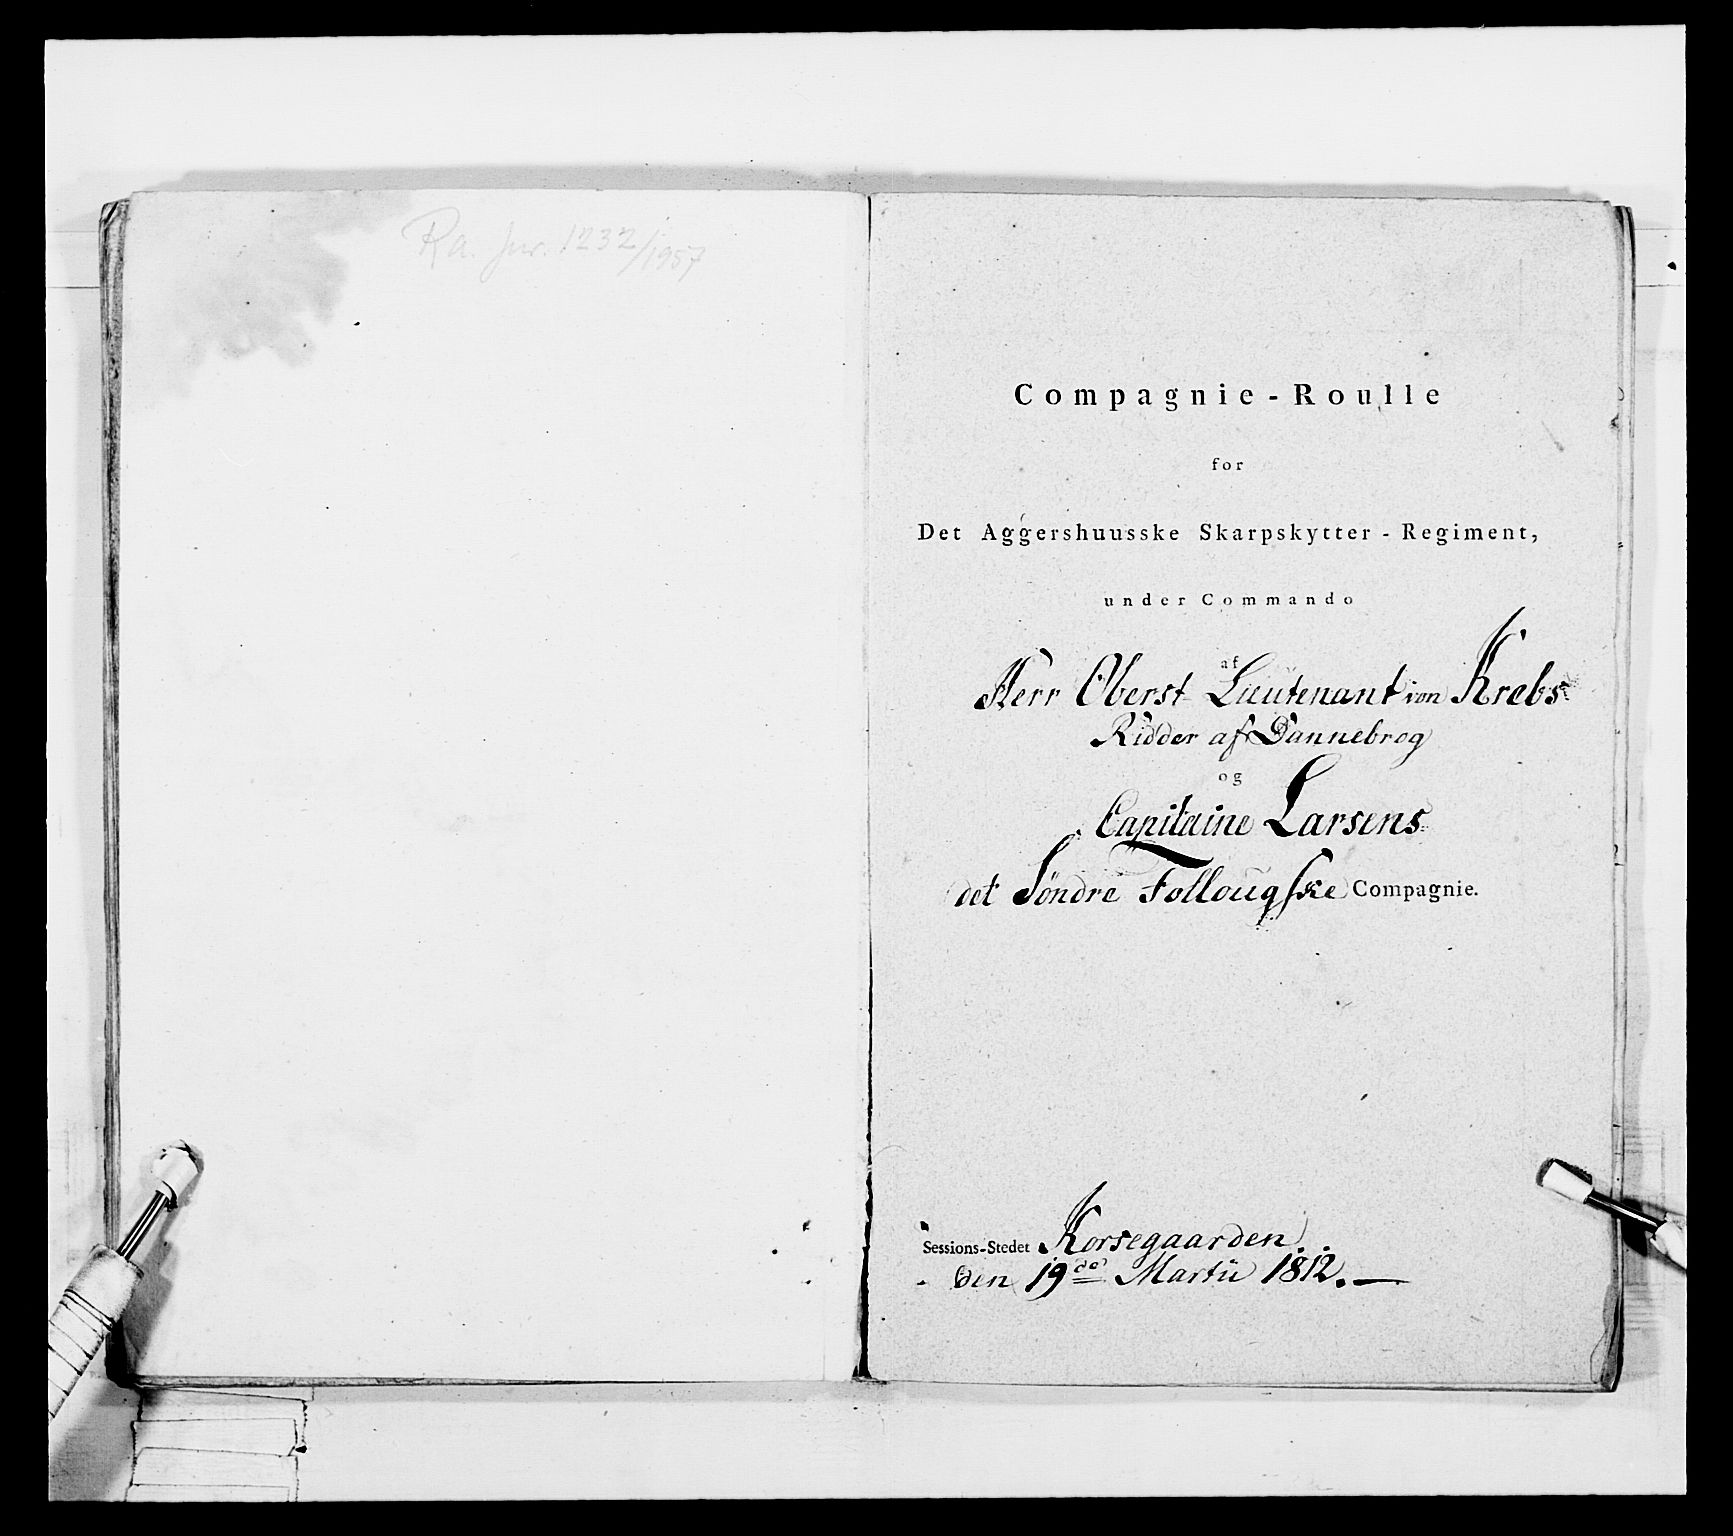 Ra. Jnr. 1232/1957
Compagnie-Roulle
for
Det Aggershuusske Skarpskytter-Regiment,
under Commando
af
Herr Oberst Lieutenant von Krebs
Ridder af Dannebrog
og
Capitaine Larsens
det Søndre Follougske Compagnie.
Sessions-Stedet Korsegaarden
den 19de Martii 1812.